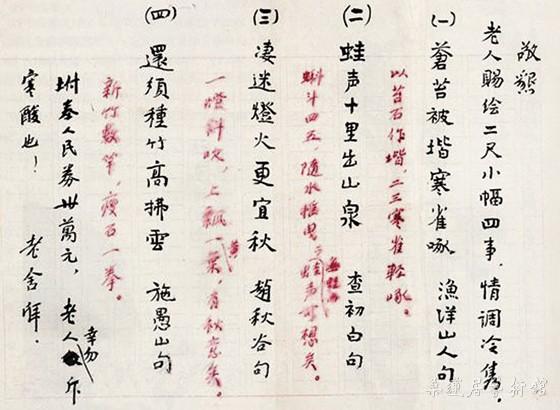 敬懇
老人賜绘二尺小幅四事，情调冷雋。
(一) 蒼苔被堦寒雀啄 漁洋山人句
以苔石作堦，二三寒雀輕啄。
(二) 蛙声十里出山泉 查初白句
蝌斗四五，隨水摇曳；無蛙而蛙声可想矣。
(三) 凄迷燈火更宜秋 趙秋谷句
一燈斜吹，上飄一黄葉，有秋意矣。
(四) 還須種竹高拂雲 施愚山句
新竹數竿，瘦石一拳。
坿奉人民券卅萬元，老人幸勿斥
寒酸也！ 老舍拜．